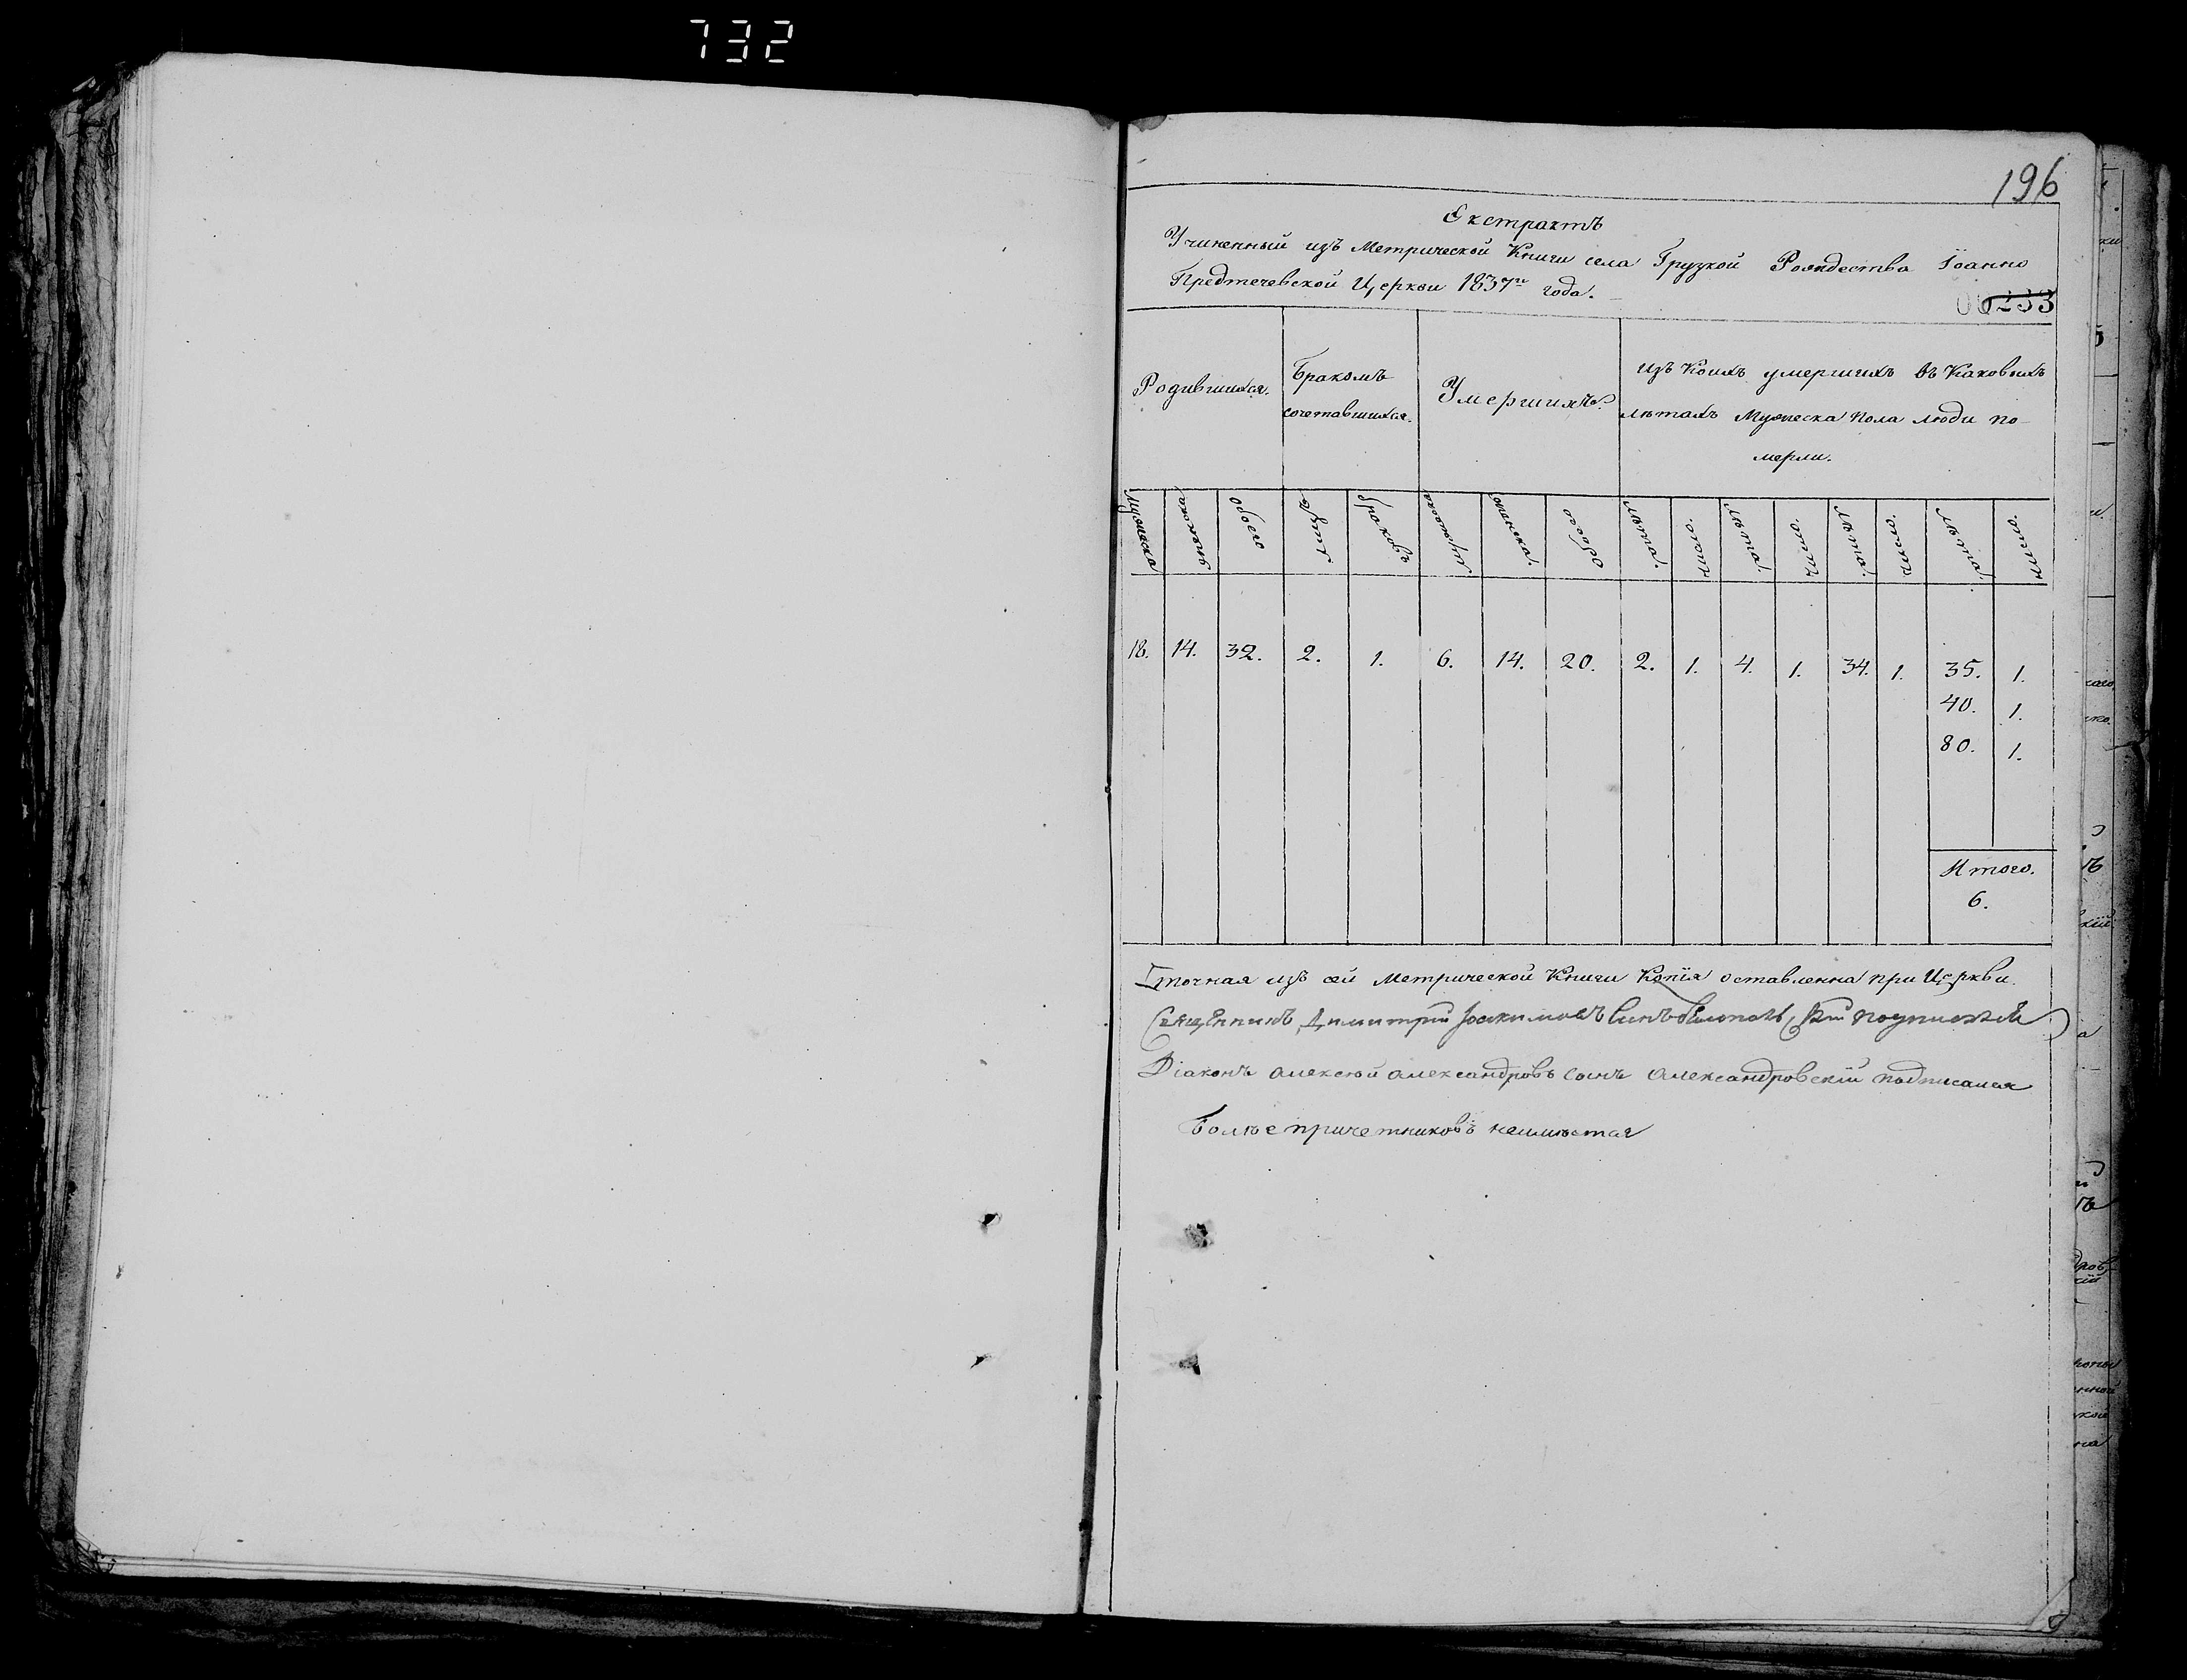 732
196
Екстрактъ
Учиненный изъ Метрической Книги села Грузкой Рождества Іоанно
Предтечевской Церкви 1837го года.
233
Родившихся.
Бракомъ
сочетавшихся.
Умершихъ.
изъ Коихъ умершихъ въ Каковыхъ
лѣтахъ Мужеска Пола люди по-
мерли.
Мужеска женска обоего лицъ браковъ Мужеска женска обоего лѣта. число. лѣта. число. лѣта. число. лѣта. число.
18. 14. 32. 2. 1. 6. 14. 20. 2. 1. 4. 1. 34. 1. 35. 1.
40. 1.
80. 1.
Итого.
6.
точная изъ сей Метрической Книги Копія оставленна при Церкви.
Священникъ Димитрій Іоакимовъ Синъ
Діаконъ Алексѣй Александровъ Сынъ Александровскій подписался
Болѣе причетниковъ неимѣется